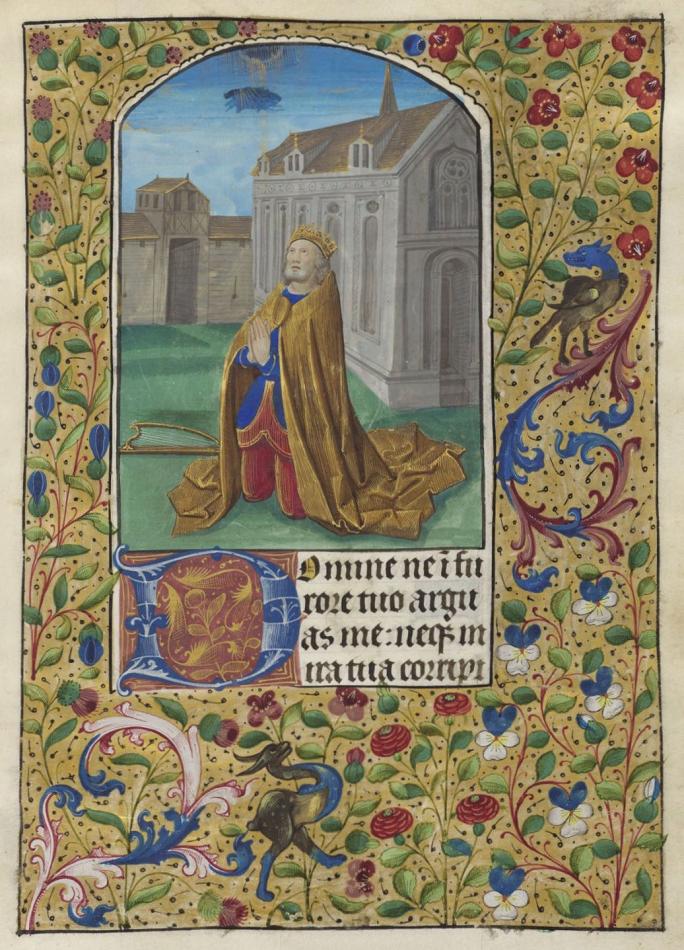 Domine ne ī fu
rore tuo argu
as me: neqꝫ in
ira tua corripi